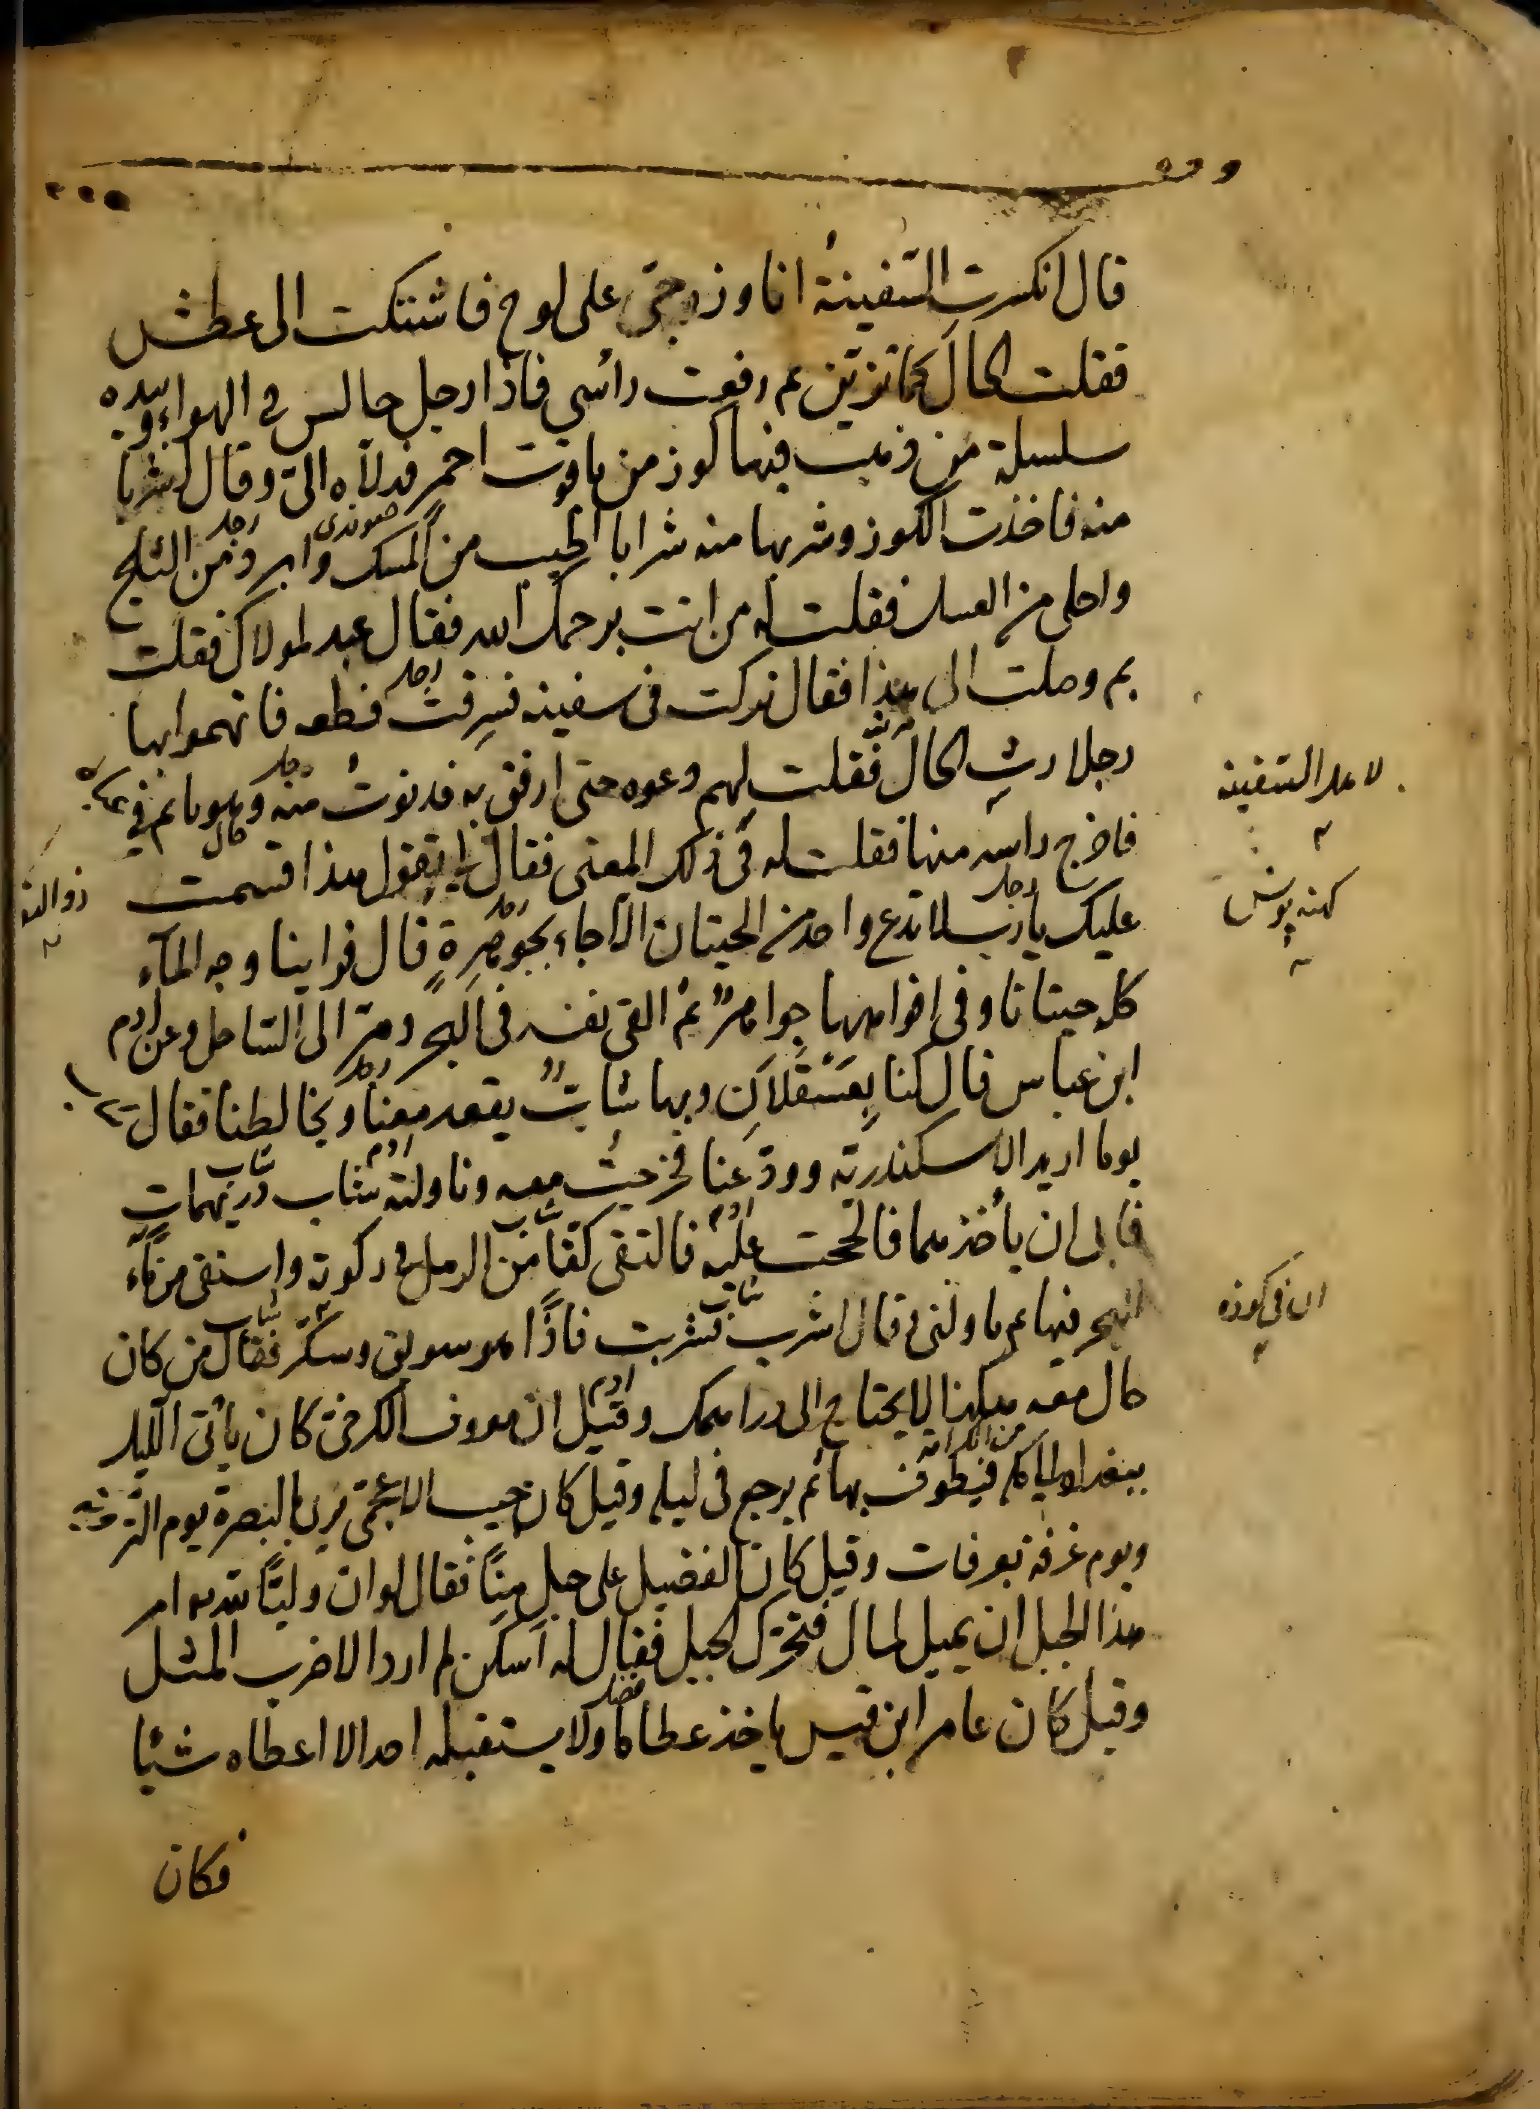 قال انكسرت السفينة انا وزوجتى على لوح فاشتكت الى عطش
فقلت الحال كما ترين ثم رفعت رأسى فاذا رجل جالس فى الهواء وبيده
سلسلة من ذهب فيها كوز من ياقوت احمر فدلاه الىّ وقال اشربا
منه فاخذت الكوز وشربها منه شرابا اطيب من المسك وابرد من الثلج
واحلى من العسل فقلت له من انت يرحمك الله فقال عبد لمولاك فقلت
بم وصلت الى هذا فقال تركت فى سفينة فسرقت قطعه فاتهموا بها
رجلا رث الحال فقلت لهم دعوه حتى ارفق به فدنوت منه وهو نائم فى
فاخرج راسه منها فقلت له فى ذلك المعنى فقال الى تقول هذا اقسمت
عليك يا رب لا تدع واحد من الحيتان الا جاء بجوهرة قال فراينا وجه المآء
كله حيتانا وفى افواهها جواهر ثم القى نفسه فى البحر ومر الى الساحل وعن ادم
ابن عباس قال كنا بعسقلان وبها شاب يقعد معنا ويخالطنا فقال
يوما اريد الاسكندرية وودعنا فخرجت معه وناولته شاب دريهمات
فابى ان يأخذها فالححت عليه فالتقى كفّا من الرمل فى ركوته واستقى من مآء
البحر فيها ثم ناولنى وقال اشرب فشربت فاذًا هو سويق وسكر فقال من كان
حال معه هكذا لا يحتاج الى دراهمك وقيل ان معروف الكرخى كان يأتى الليل
فيطوف بها ثم يرجع فى ليله وقيل كان حبيب الاعجمى يرى بالبصرة يوم التروية
ويوم عرفة بعرفات وقيل كان الفضيل على جبل منًا فقال لو ان وليًّا لله امر
هذا الجبل ان يميل لمال فتحرك الجبل فقال له اسكن لم ارد الا ضرب المثل
وقيل كان عامر ابن قيس ياخذ عطاءه ولا يستقبله احد الا اعطاه شيئا
فكان
لاهل السفينة
كهنه پوش
ذو النو